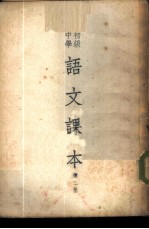 初級
中學
語文課本
第二冊